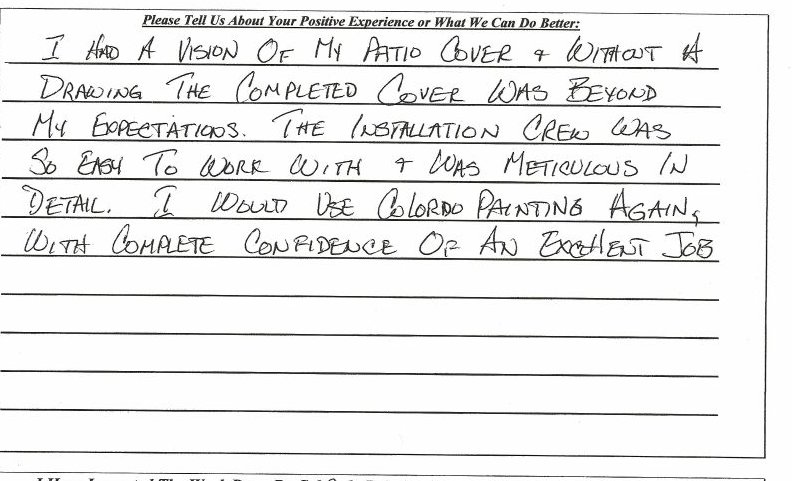 Please Tell Us About Your Positive Experience or What We Can Do Better:
I HAD A VISION OF MY PATIO COVER & WITHOUT A
DRAWING THE COMPLETED COVER WAS BEYOND
MY EXPECTATIONS. THE INSTALLATION CREW WAS
SO EASY TO WORK WITH & WAS METICULOUS IN
DETAIL. I WOULD USE COLORDO PAINTING AGAIN,
WITH COMPLETE CONFIDENCE OF AN EXCELLENT JOB